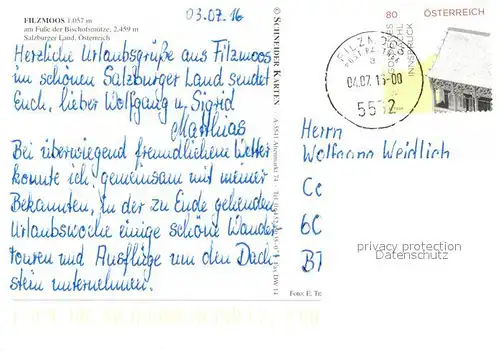 FILZMOOS 1.057 m
am Fuße der Bischofsmütze, 2.459 m
Salzburger Land, Österreich
03.07.16
Herzliche Urlaubsgrüße aus Filzmoos
im schönen Salzburger Land sendet
Euch, lieber Wolfgang u. Sigrid
Matthias
Bei überwiegend freundlichem Wetter
konnte ich, gemeinsam mit meiner
Bekannten, in der zu Ende gehenden
Urlaubswoche einige schöne Wander-
touren und Ausflüge um den Dach-
stein unternehmen.
© SCHNEIDER KARTEN
80 ÖSTERREICH
INNSBRUCK
FILZMOOS
04.07.16-00
5532
Herrn
Wolfgang Weidlich
privacy protection
Ansichtskarten-Versand
Foto: E.